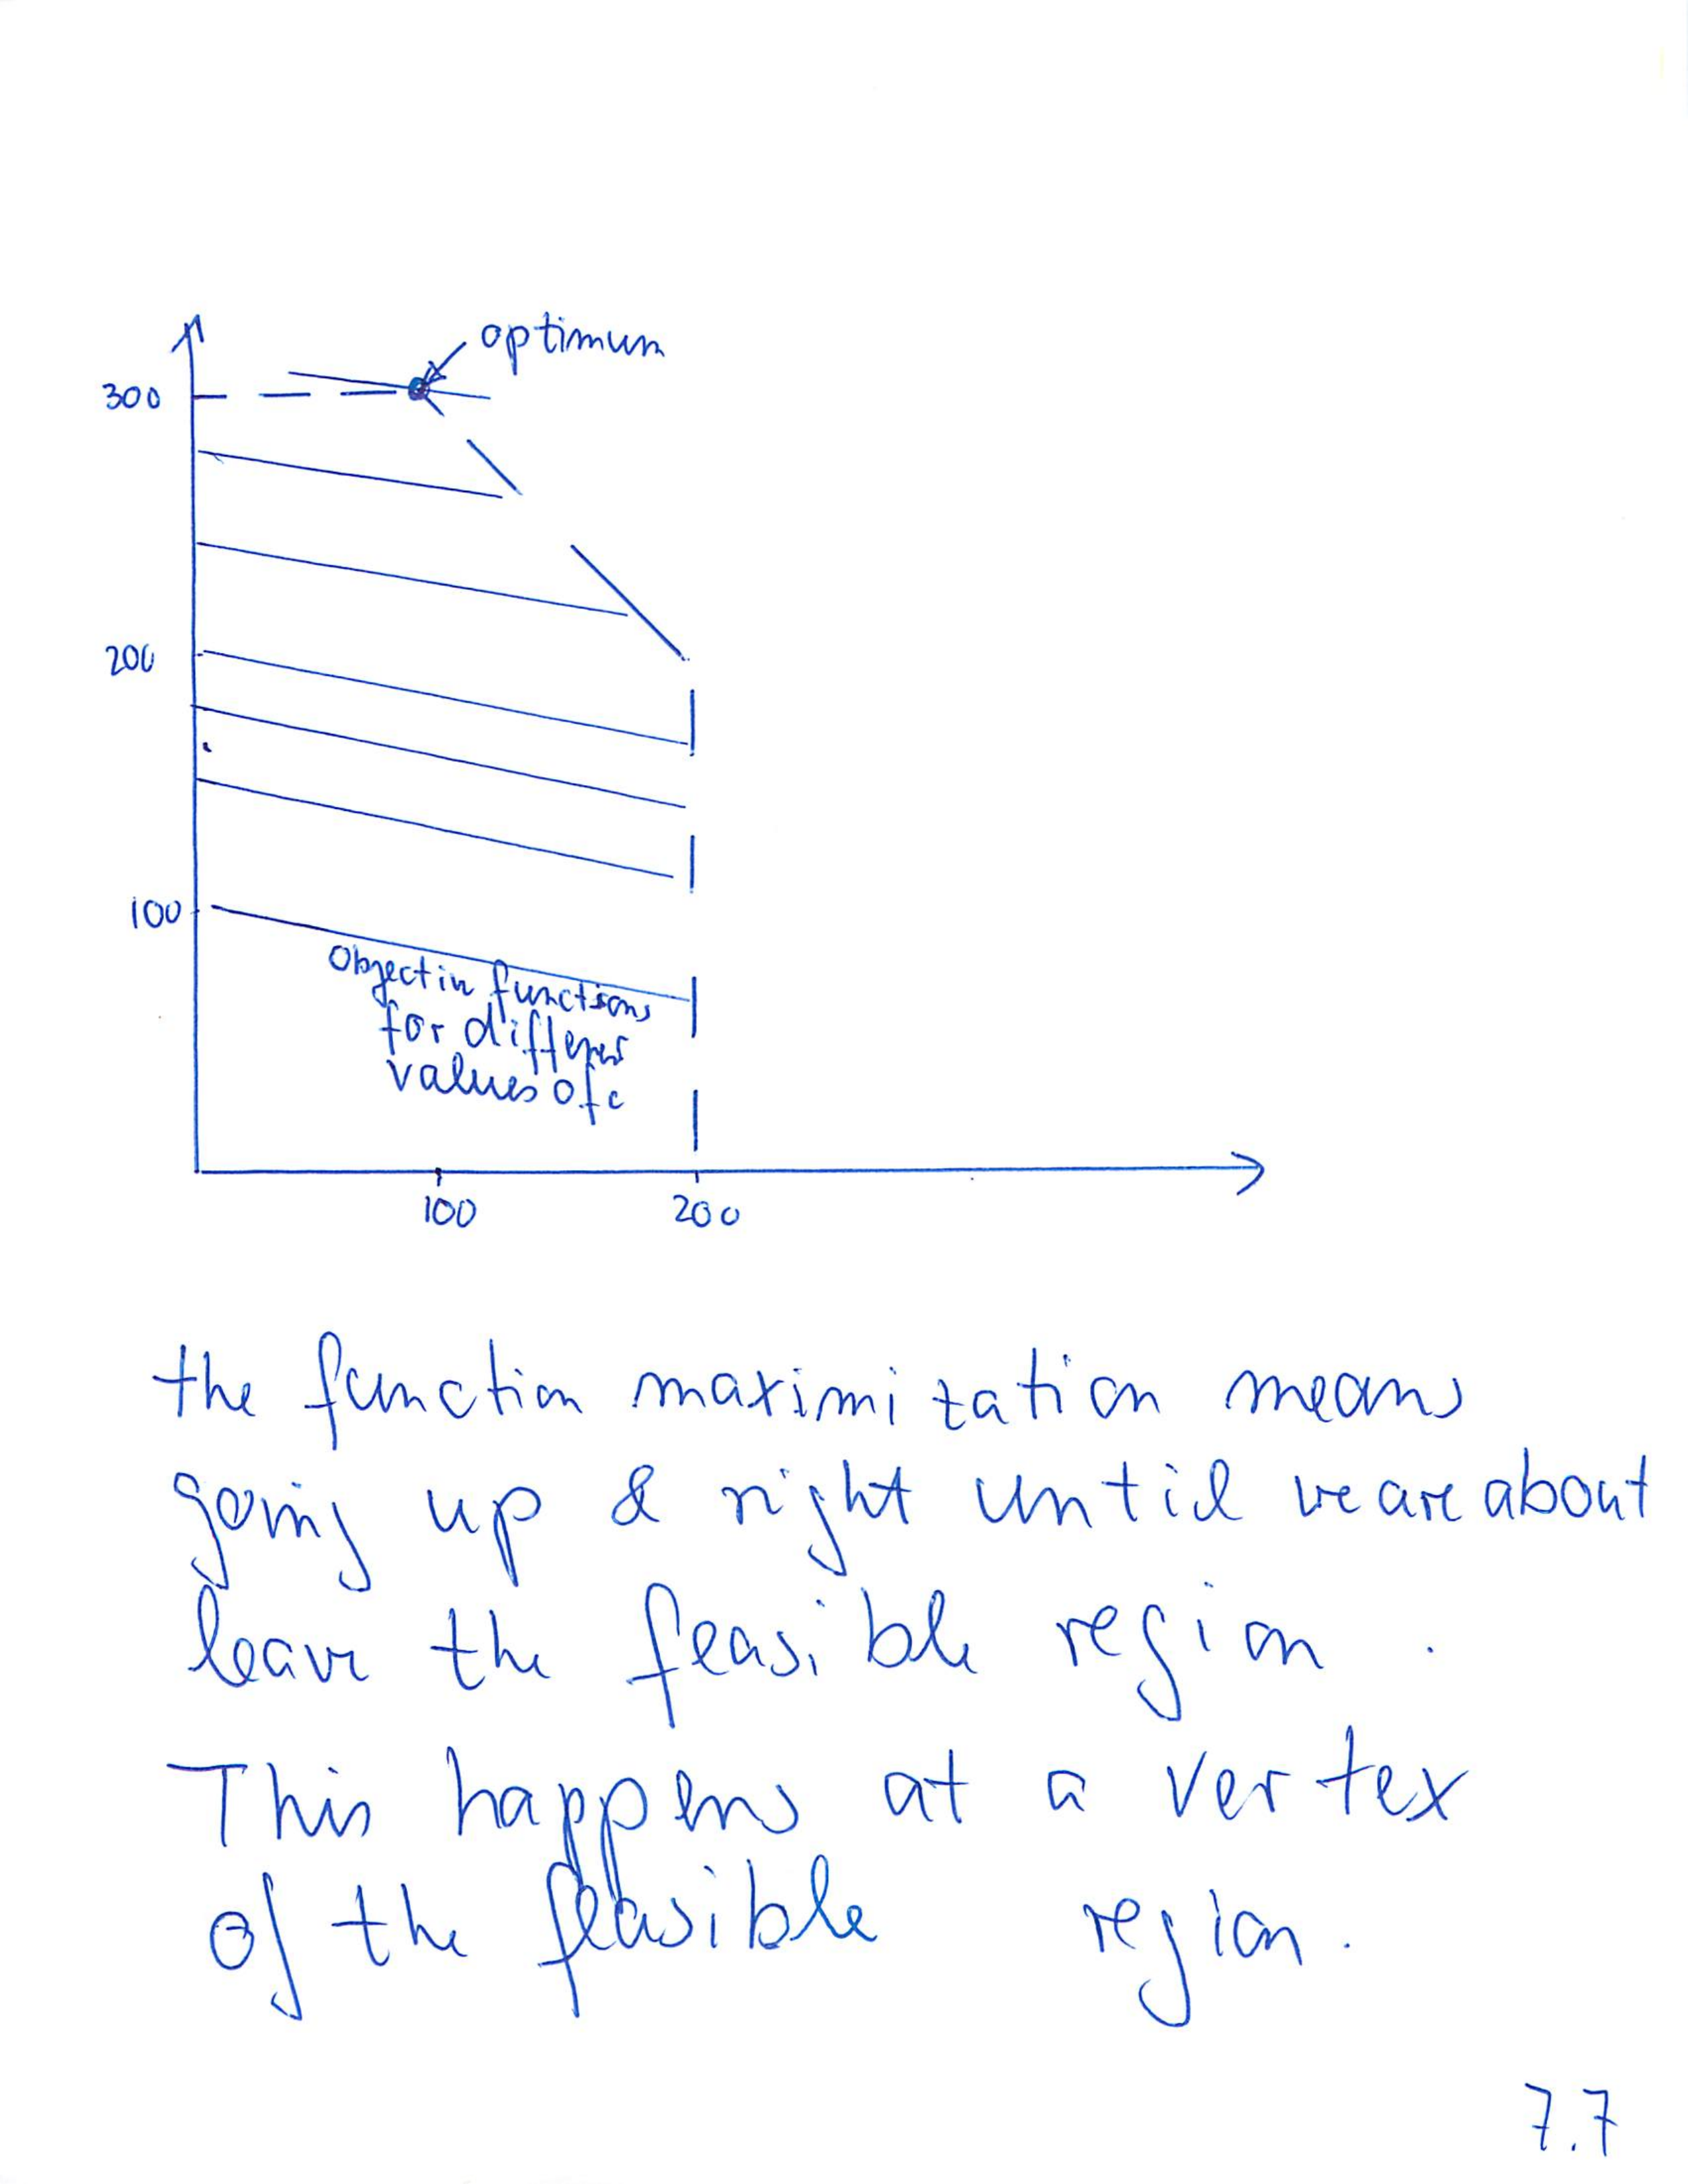 optimum
300
200
100
Objectiv functions
for different
values of c
100
200
the function maximization means
going up & right until we are about
leave the feasible region.
This happens at a vertex
of the feasible region.
7.7